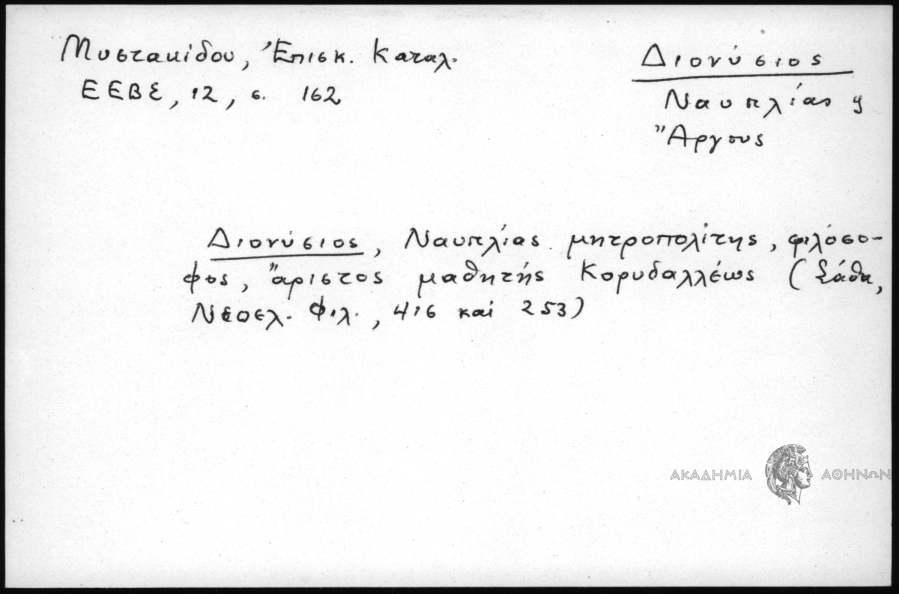 Μυστακίδου, Ἐπισκ. Καταλ.
ΕΕΒΣ, 12, σ. 162
Διονύσιος
Ναυπλίας ϗ
Ἄργους
Διονύσιος, Ναυπλίας μητροπολίτης, φιλόσο-
φος, ἄριστος μαθητής Κορυδαλλέως (Σάθα,
Νεοελ. Φιλ., 416 καί 253)
ΑΚΑΔΗΜΙΑ ΑΘΗΝΩΝ